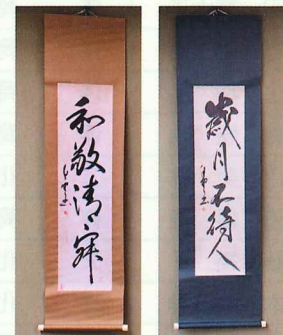 和敬清寂
歳月不待人